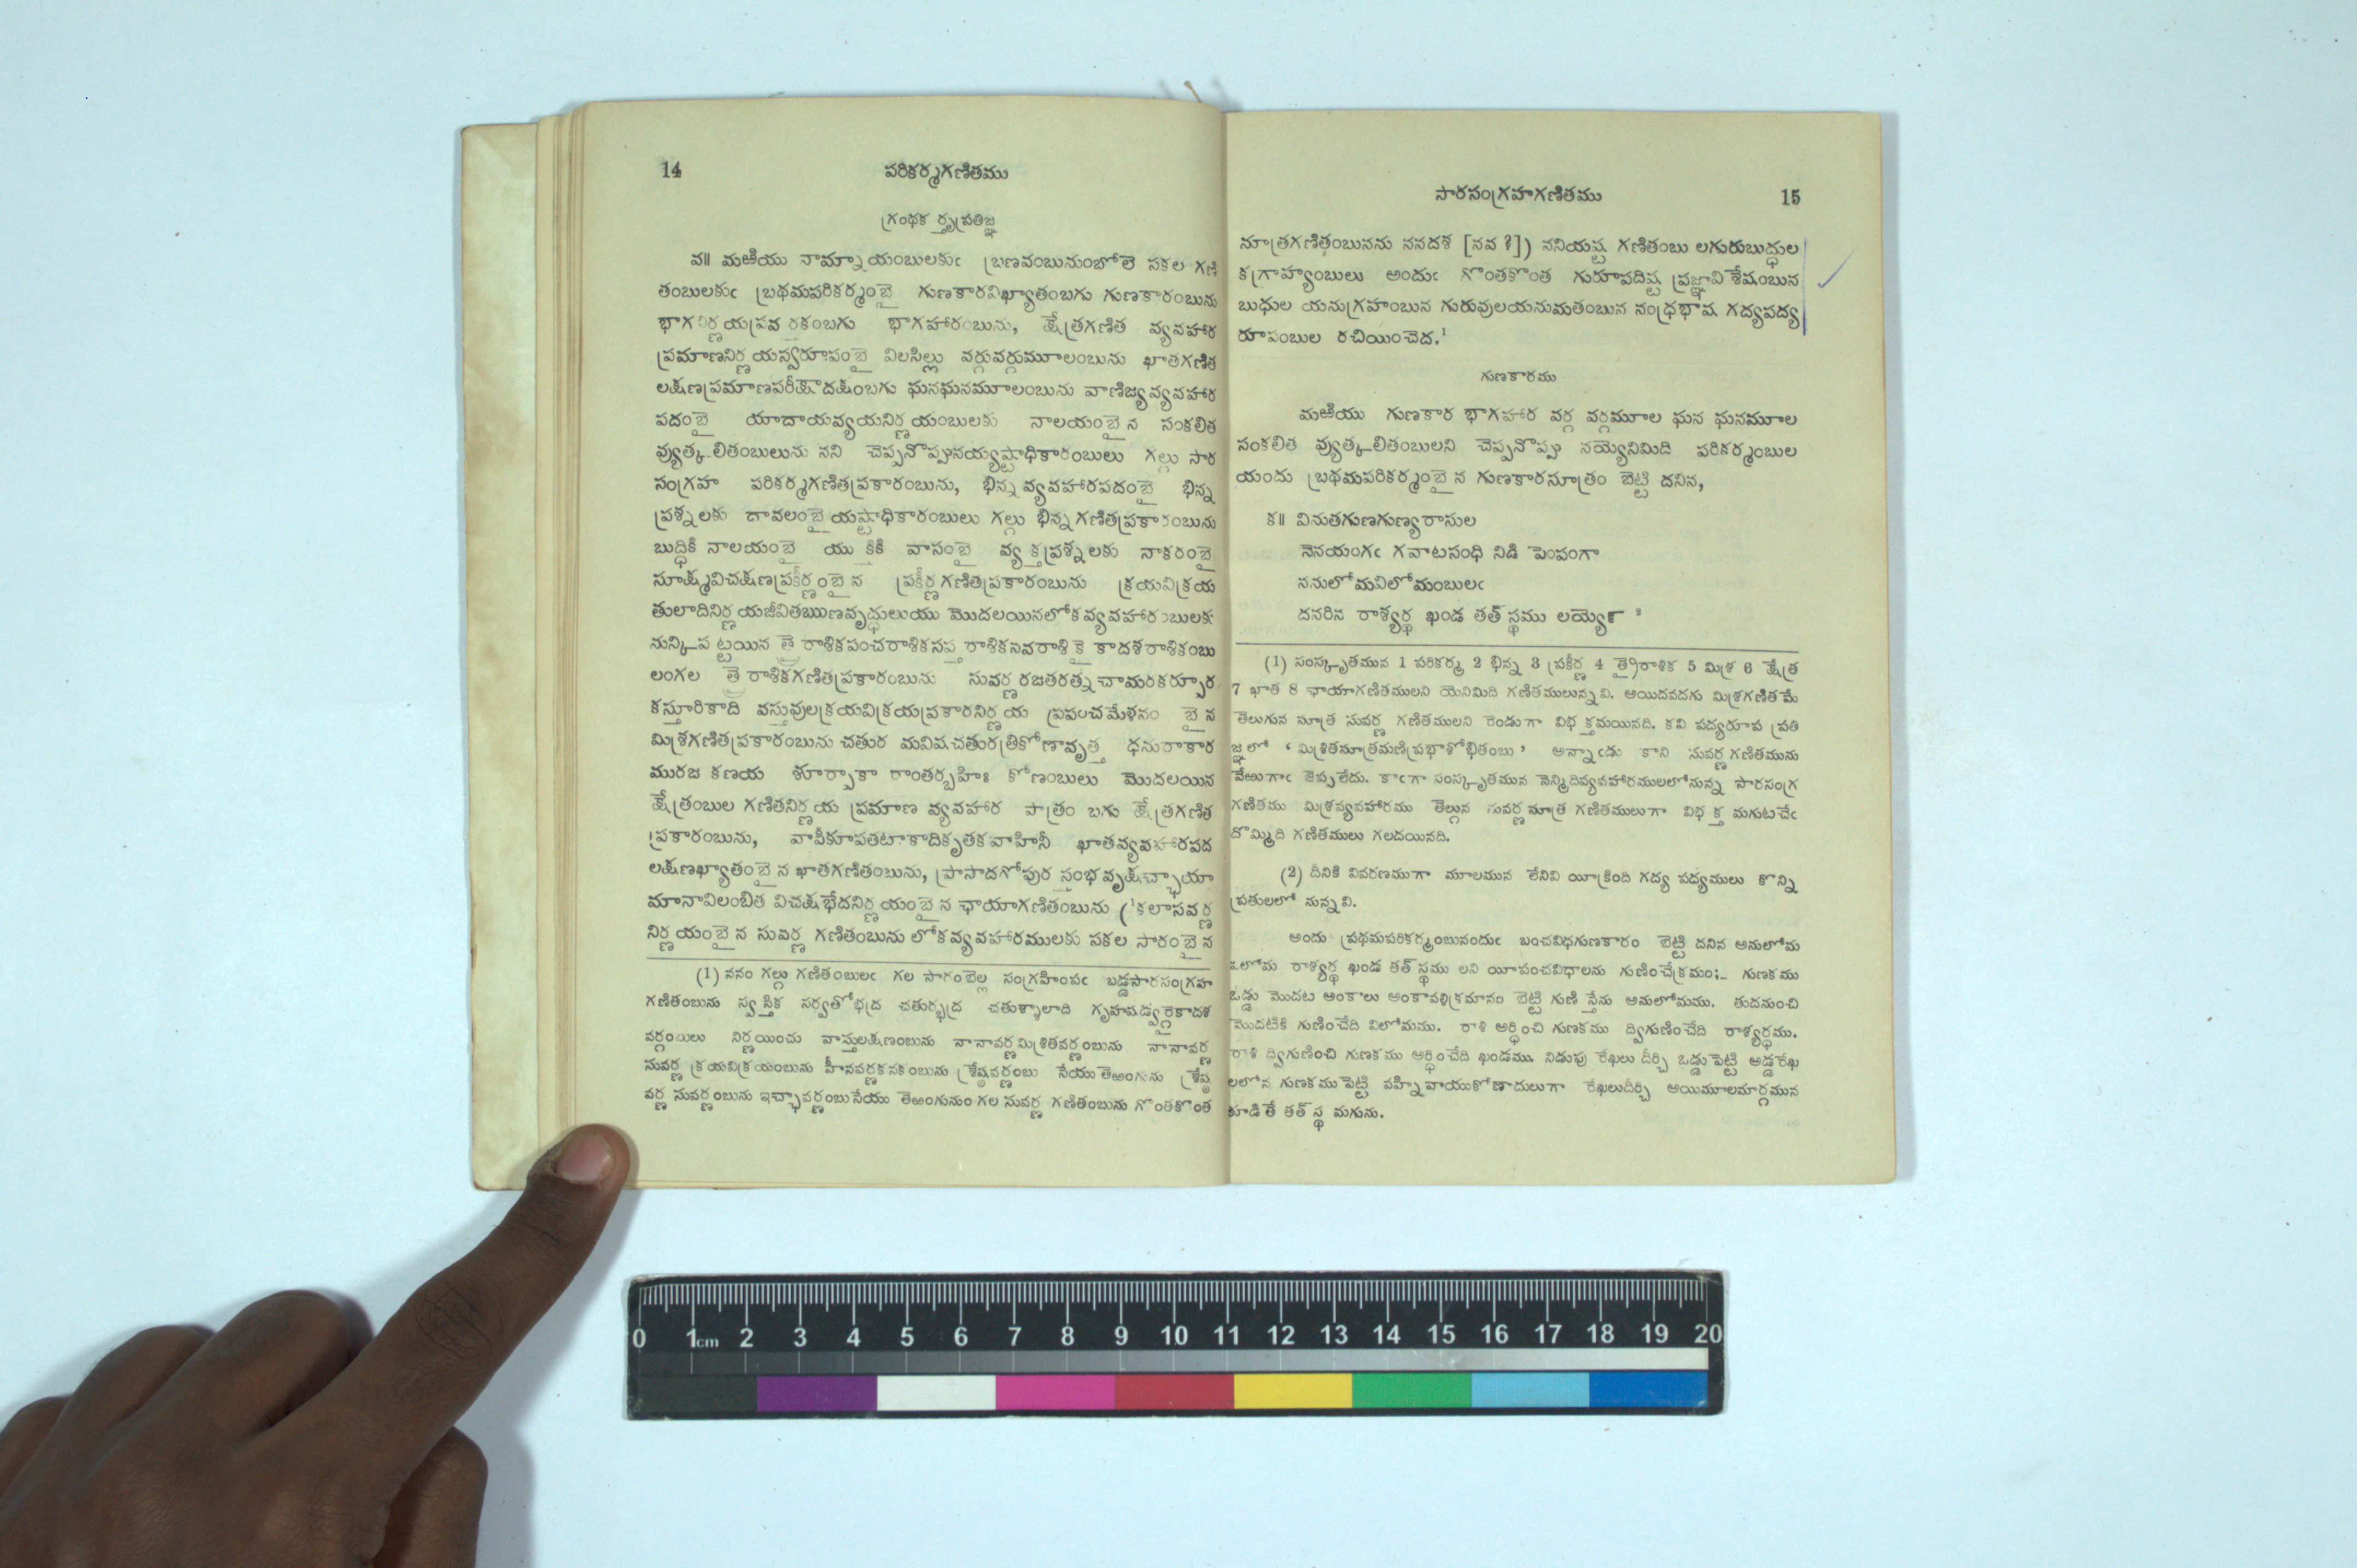 14
పరికర్మగణితము
గ్రంథకర్తృప్రతిజ్ఞ
వ॥ మఱియు నామ్నాయంబులకుఁ బ్రణవంబునుంబోలె సకల గణి
తంబులకుఁ బ్రథమపరికర్మంబై గుణకారవిఖ్యాతంబగు గుణకారంబును
భాగనిర్ణయప్రవర్తకంబగు భాగహారంబును, క్షేత్రగణిత వ్యవహార
ప్రమాణనిర్ణయస్వరూపంబై విలసిల్లు వర్గువర్గుమూలంబును ఖాతగణిత
లక్షణప్రమాణపరీక్షాదక్షంబగు ఘనఘనమూలంబును వాణిజ్యవ్యవహార
పదంబై యాదాయవ్యయనిర్ణయంబులకు నాలయంబైన సంకలిత
వ్యుత్కలితంబులును నని చెప్పనొప్పునయ్యష్టాధికారంబులు గల్గు సార
సంగ్రహ పరికర్మగణితప్రకారంబును, భిన్నవ్యవహారపదంబై భిన్న
ప్రశ్నలకు దావలంబై యష్టాధికారంబులు గల్గు భిన్నగణితప్రకారంబును
బుద్ధికి నాలయంబై యుక్తికి వాసంబై వ్యక్తప్రశ్నలకు నాకరంబై
సూక్ష్మవిచక్షణప్రకీర్ణంబైన ప్రకీర్ణగణితప్రకారంబును క్రయవిక్రయ
తులాదినిర్ణయజీవితఋణవృద్ధులుయు మొదలయినలోకవ్యవహారంబులకు
నున్కిపట్టయిన త్రైరాశికపంచరాశికసప్తరాశికనవరాశికైకాదశరాశికంబు
లంగల త్రైరాశికగణితప్రకారంబును సువర్ణరజతరత్నచామరకర్పూర
కస్తూరికాది వస్తువులక్రయవిక్రయప్రకారనిర్ణయ ప్రపంచమేళనంబైన
మిశ్రగణితప్రకారంబును చతురమవిషచతురత్రికోణావృత్త ధనురాకార
మురజ కణయ శూర్పాకా రాంతర్బహిః కోణంబులు మొదలయిన
క్షేత్రంబుల గణితనిర్ణయ ప్రమాణ వ్యవహార పాత్రం బగు క్షేత్రగణిత
ప్రకారంబును, వాపీకూపతటాకాదికృతకవాహినీ ఖాతవ్యవహారపద
లక్షణఖ్యాతంబైన ఖాతగణితంబును, ప్రాసాదగోపుర స్తంభవృక్షచ్ఛాయా
మానావిలంబిత విచక్షభేదనిర్ణయంబైన ఛాయాగణితంబును (¹కలాసవర్ణ
నిర్ణయంబైన సువర్ణ గణితంబును లోకవ్యవహారములకు సకల సారంబైన
(1) ననం గల్గు గణితంబులఁ గల సారంబెల్ల సంగ్రహింపఁ బడ్డసారసంగ్రహ
గణితంబును స్వస్తిక సర్వతోభద్ర చతుర్భద్ర చతుశ్శాలాది గృహషడ్వర్గైకాదశ
వర్గంబులు నిర్ణయించు వాస్తులక్షణంబును నానావర్ణమిశ్రితవర్ణంబును నానావర్ణ
సువర్ణ క్రయవిక్రయంబును హీనవర్ణకనకంబును శ్రేష్ఠవర్ణంబు సేయు తెఱంగును శ్రేష్ఠ
వర్ణ సువర్ణంబును ఇచ్ఛావర్ణంబుసేయు తెఱంగునుం గల సువర్ణ గణితంబును గొంతకొంత
సారసంగ్రహగణితము
15
సూత్రగణితంబునను ననదశ [నవ ?]) ననియష్ట గణితంబు లగురుబుద్ధుల
కగ్రాహ్యంబులు అందుఁ గొంతకొంత గురూపదిష్ట ప్రజ్ఞావిశేషంబున
బుధుల యనుగ్రహంబున గురువులయనుమతంబున నంధ్రభాష గద్యపద్య
రూపంబుల రచియించెద.¹
గుణకారము
మఱియు గుణకార భాగహార వర్గ వర్గమూల ఘన ఘనమూల
సంకలిత వ్యుత్కలితంబులని చెప్పనొప్పు నయ్యెనిమిది పరికర్మంబుల
యందు బ్రథమపరికర్మంబైన గుణకారసూత్రం బెట్టి దనిన,
క॥ వినుతగుణగుణ్యరాసుల
నెనయంగఁ గవాటసంధి నిడి పెంపంగా
ననులోమవిలోమంబులఁ
దనరిన రాశ్యర్థ ఖండ తత్ స్థము లయ్యెన్ ²
(1) సంస్కృతమున 1 పరికర్మ 2 భిన్న 3 ప్రకీర్ణ 4 త్రైరాశిక 5 మిశ్ర 6 క్షేత్ర
7 ఖాత 8 ఛాయాగణితములని యెనిమిది గణితములున్నవి. అయిదవదగు మిశ్రగణితమే
తెలుగున సూత్ర సువర్ణ గణితములని రెండుగా విభక్తమయినది. కవి పద్యరూప ప్రతి
జ్ఞలో ‘ మిశ్రితసూత్రమణిప్రభాశోభితంబు ’ అన్నాఁడు కాని సువర్ణగణితమును
వేఱుగాఁ జెప్పలేదు. కాఁగా సంస్కృతమున నెన్మిదివ్యవహారములలోనున్న సారసంగ్ర
గణితము మిశ్రవ్యవహారము తెల్గున సువర్ణసూత్ర గణితములుగా విభక్త మగుటచేఁ
దొమ్మిది గణితములు గలదయినది.
(2) దీనికి వివరణముగా మూలమున లేనివి యీక్రింది గద్య పద్యములు కొన్ని
ప్రతులలో నున్నవి.
అందు ప్రథమపరికర్మంబునందుఁ బంచవిధగుణకారం బెట్టి దనిన అనులోమ
విలోమ రాశ్యర్థ ఖండ తత్ స్థము లని యీపంచవిధాలను గుణించేక్రమం:_ గుణకము
ఒడ్డు మొదట అంకాలు అంకావళిక్రమానం బెట్టి గుణిస్తేను అనులోమము. తుదనుంచి
మొదటికి గుణించేది విలోమము. రాశి అర్ధించి గుణకము ద్విగుణించేది రాశ్యర్ధము.
రాశి ద్విగుణించి గుణకము అర్ధించేది ఖండము. నిడుపు రేఖలు దీర్చి ఒడ్డుపెట్టి అడ్డరేఖ
లలోన గుణకముపెట్టి వహ్ని వాయుకోణాదులుగా రేఖలుదీర్చి అయిమూలమార్గమున
కూడితే తత్ స్థ మగును.
0 1cm 2 3 4 5 6 7 8 9 10 11 12 13 14 15 16 17 18 19 20